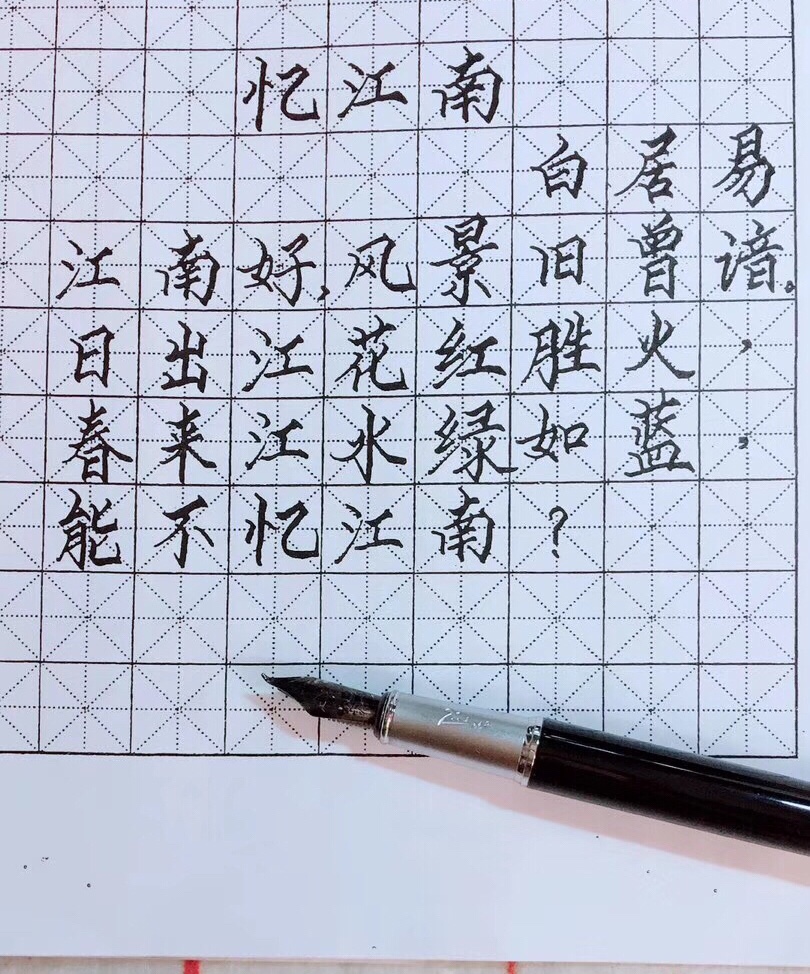 忆江南
白居易
江南好,风景旧曾谙。
日出江花红胜火，
春来江水绿如蓝，
能不忆江南？